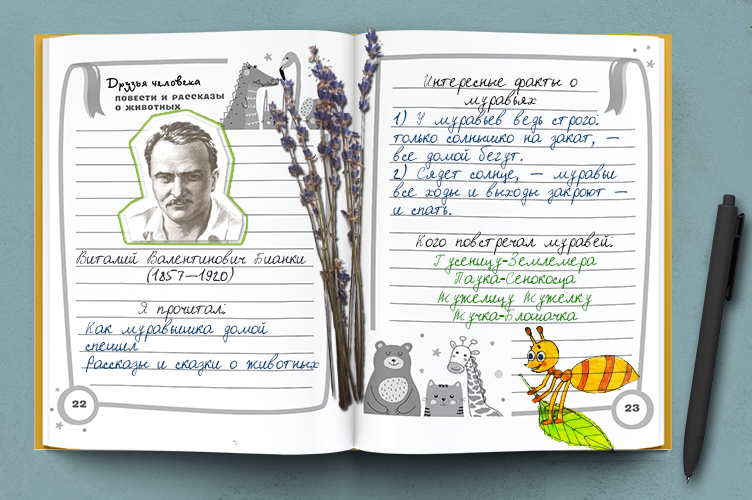 Друзья человека
ПОВЕСТИ И РАССКАЗЫ
О ЖИВОТНЫХ
Виталий Валентинович Бианки
(1857—1920)
Я прочитал:
Как муравьишка домой
спешил
Рассказы и сказки о животных
22
Интересные факты о
муравьях
1) У муравьев ведь строго:
только солнышко на закат, —
все домой бегут.
2) Сядет солнце, — муравьи
все ходы и выходы закроют —
и спать.
Кого повстречал муравей:
Гусеницу-Землемера
Паука-Сенокосца
Жужелицу Жужелку
Жучка-Блошачка
23